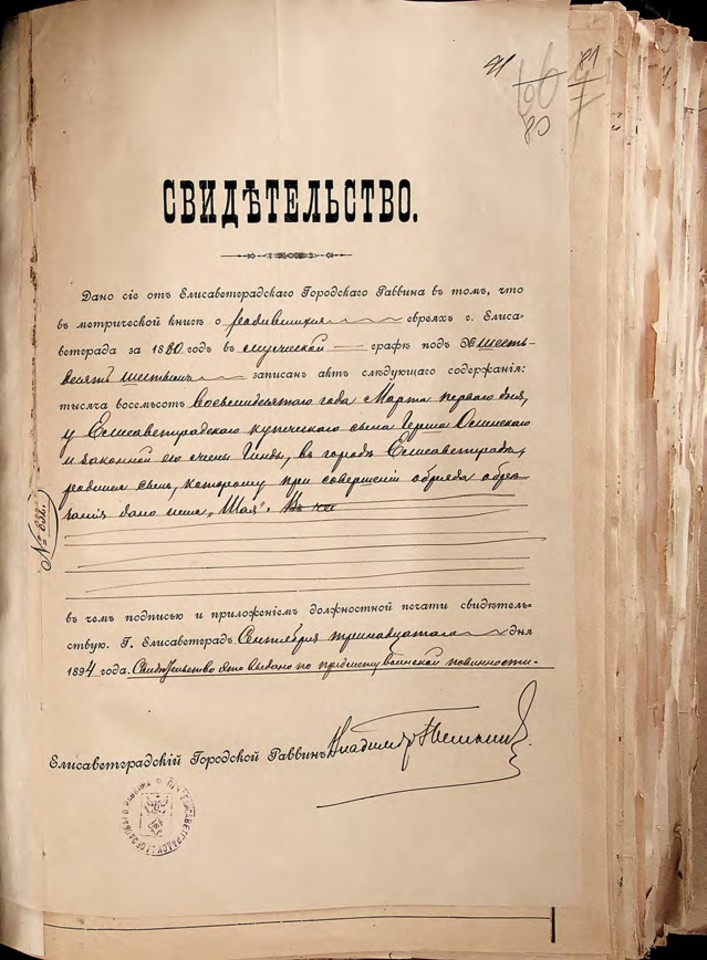 91
80
81
СВИДѢТЕЛЬСТВО.
Дано сіе отъ Елисаветградскаго Городскаго Раввина въ томъ, что
въ метрической книгѣ о родившихся евреяхъ г. Елиса-
ветграда за 1880 годъ въ мужеской графѣ подъ № шесть-
десятъ шестымъ записанъ актъ слѣдующаго содержанія:
тысяча восемьсотъ восьмидесятаго года Марта перваго дня,
у Елисаветградскаго купеческаго сына Герша Осинскаго
и законной его жены Гинды, въ городѣ Елисаветградѣ,
родился сынъ, которому при совершеніи обряда обрѣ-
занія дано имя „Шая“. Въ че
№ 632.
въ чемъ подписью и приложеніемъ должностной печати свидѣтель-
ствую. Г. Елисаветградъ. Сентября тринадцатаго дня
1894 года. Свидѣтельство это выдано по предмету воинской повинности.
Елисаветградскій Городской Раввинъ Владиміръ